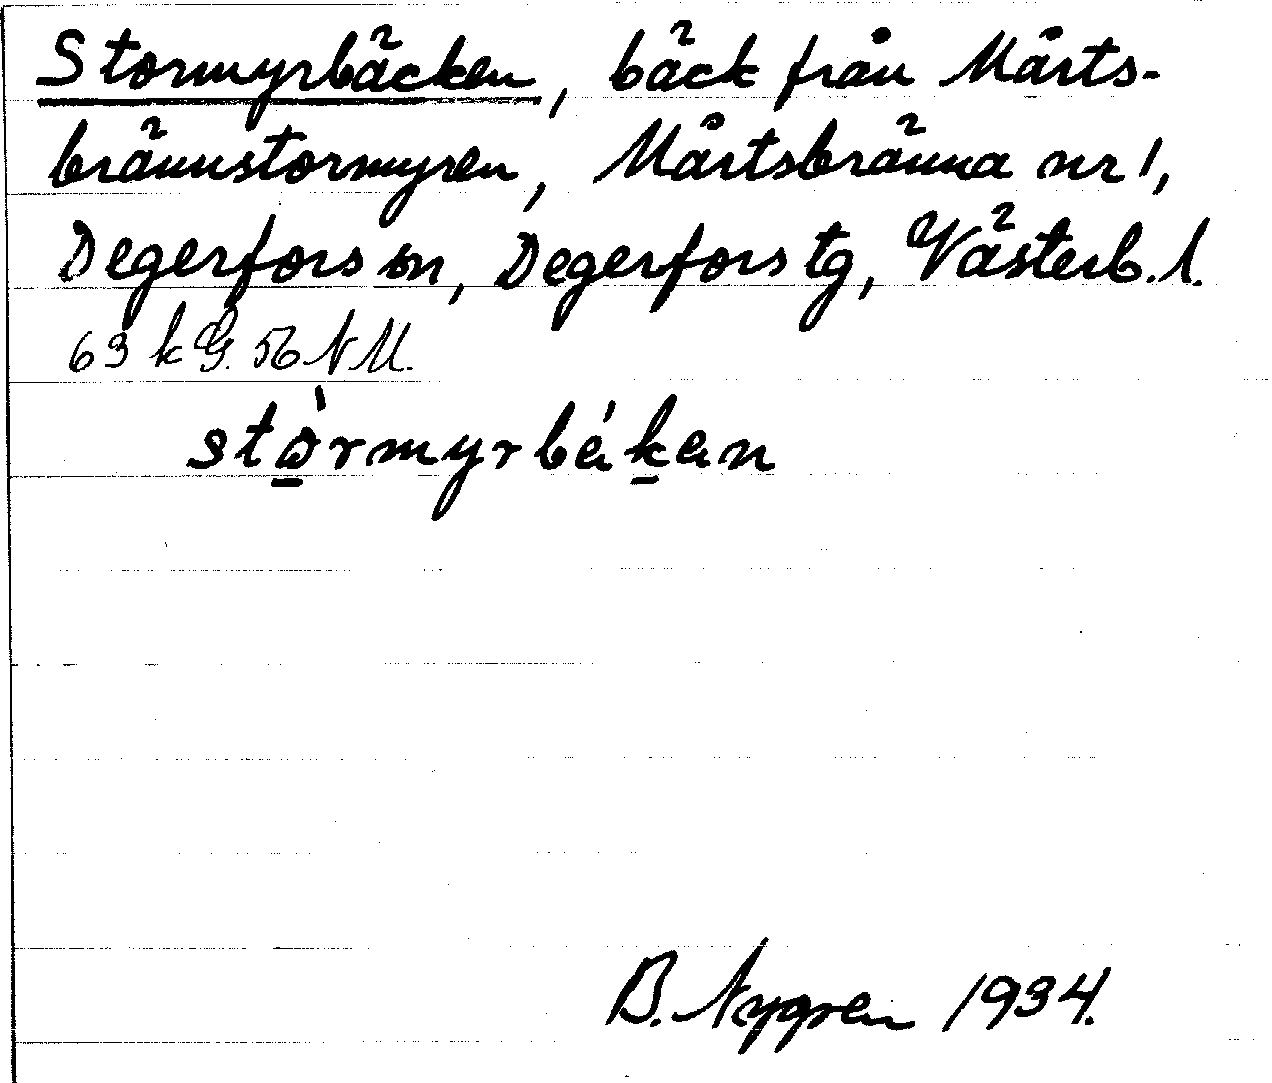 Stormyrbäcken, bäck från Mårts-
brännstormyren, Mårtsbränna nr 1,
Degerfors sn, Degerfors tg, Västerb. l.
63 k G. 56 N M.
stòrmyrbékan
B. Nygren 1934.